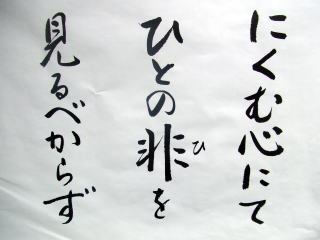 にくむ心にて
ひとの非をひ
見るべからず